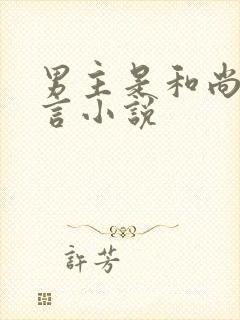 男主是和尚
言小說
許芳